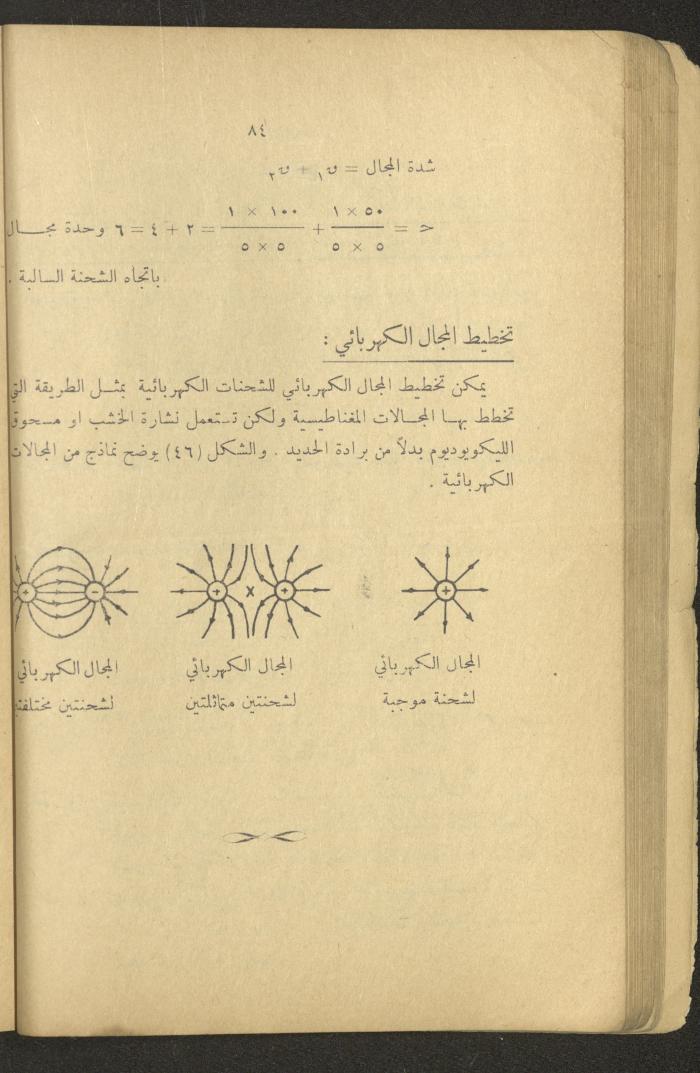 ٨٤
شدة المجال = ق١ + ق٢
ح = ٥٠ × ١ / ٥ × ٥ + ١٠٠ × ١ / ٥ × ٥ = ٢ + ٤ = ٦ وحدة مجال
باتجاه الشحنة السالبة .
تخطيط المجال الكهربائي :
يمكن تخطيط المجال الكهربائي للشحنات الكهربائية بمثل الطريقة التي
تخطط بها المجالات المغناطيسية ولكن تستعمل نشارة الخشب او مسحوق
الليكوبوديوم بدلاً من برادة الحديد . والشكل (٤٦) يوضح نماذج من المجالات
الكهربائية .
+ + × + - +
المجال الكهربائي المجال الكهربائي المجال الكهربائي
لشحنة موجبة لشحنتين متماثلتين لشحنتين